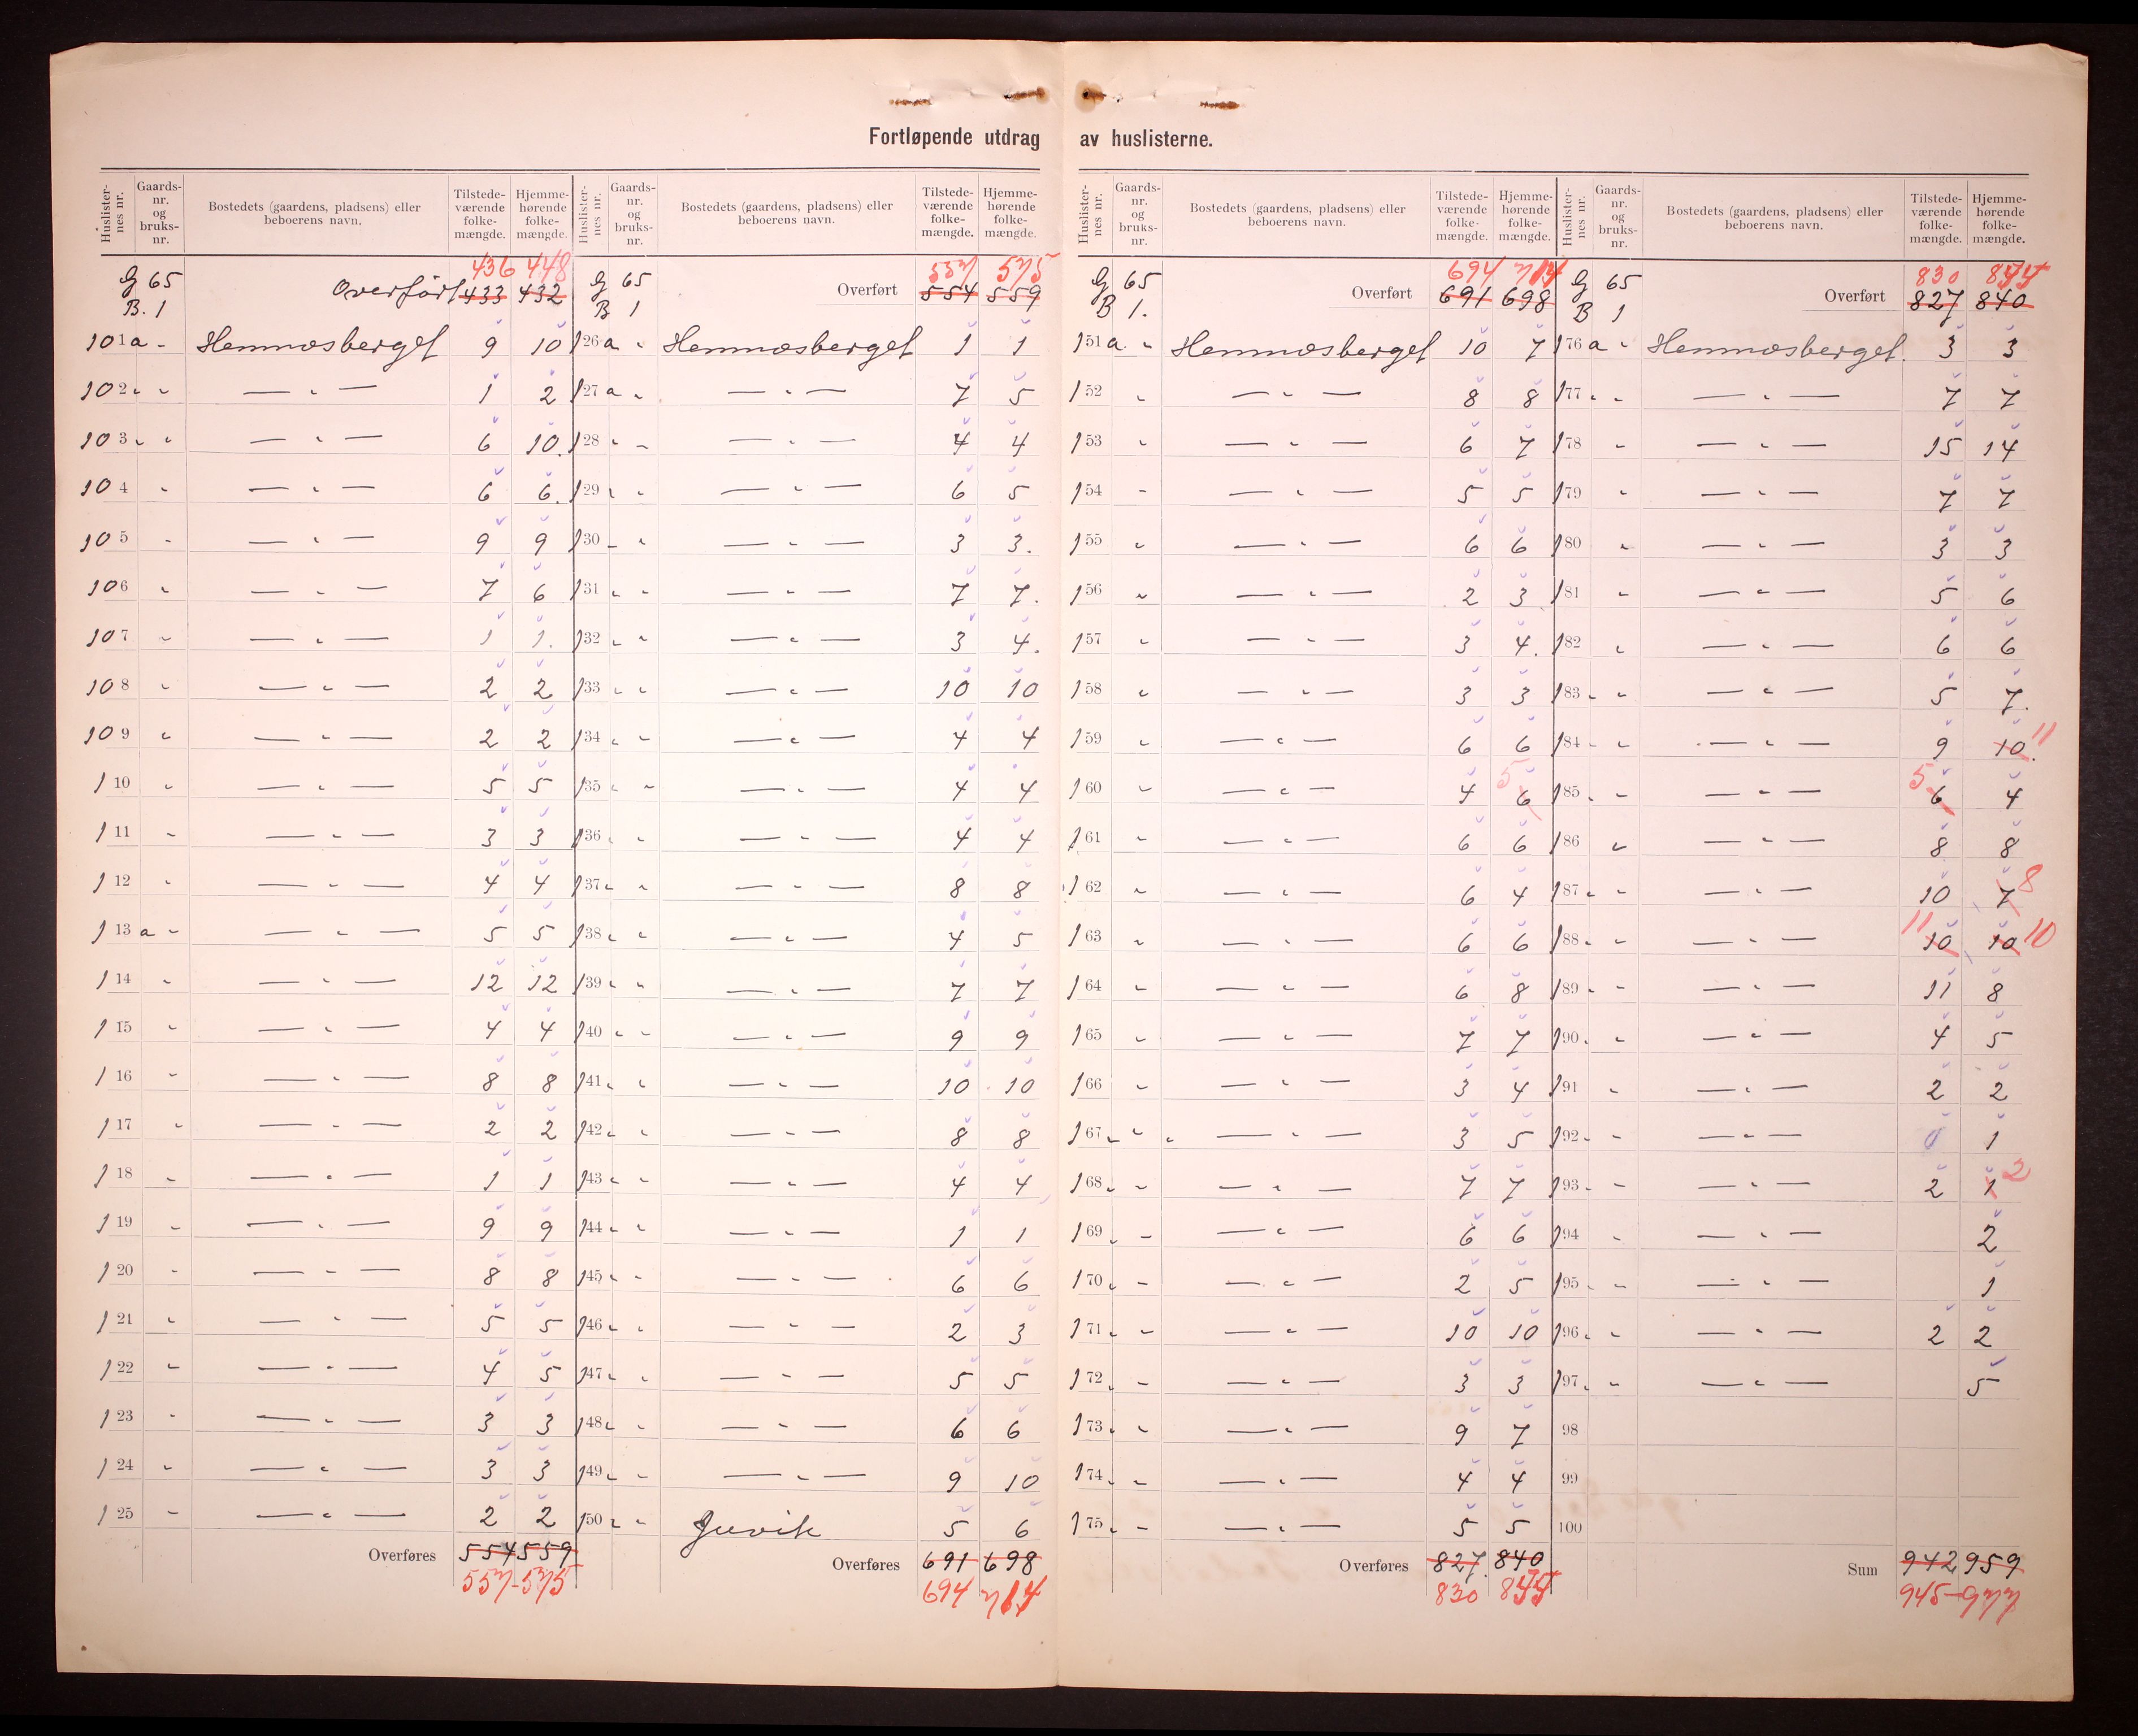 Fortløpende utdrag av huslisterne.
Huslister-nes nr. Gaards-nr. og bruks-nr. Bostedets (gaardens, pladsens) eller beboerens navn. Tilstede-værende folke-mængde. Hjemme-hørende folke-mængde.
436 448
G 65 Overført 433 432
B. 1
101 a " Hemnæsberget 9 10
102 " " — " — 1 2
103 " " — " — 6 10.
104 " — " — 6 6.
105 " — " — 9 9
106 " — " — 7 6
107 " — " — 1 1.
108 " — " — 2 2
109 " — " — 2 2
110 " — " — 5 5
111 " — " — 3 3
112 " — " — 4 4
113 a " — " — 5 5
114 " — " — 12 12
115 " — " — 4 4
116 " — " — 8 8
117 " — " — 2 2
118 " — " — 1 1
119 " — " — 9 9
120 " — " — 8 8
121 " — " — 5 5
122 " — " — 4 5
123 " — " — 3 3
124 " — " — 3 3
125 " — " — 2 2
Overføres 554 559
557-575
Huslister-nes nr. Gaards-nr. og bruks-nr. Bostedets (gaardens, pladsens) eller beboerens navn. Tilstede-værende folke-mængde. Hjemme-hørende folke-mængde.
557 575
G 65 Overført 554 559
B 1
126 a " Hemnæsberget 1 1
127 a " — " — 7 5
128 " " — " — 4 4
129 " " — " — 6 5
130 " " — " — 3 3.
131 " " — " — 7 7.
132 " " — " — 3 4.
133 " " — " — 10 10
134 " " — " — 4 4
135 " " — " — 4 4
136 " " — " — 4 4
137 " " — " — 8 8
138 " " — " — 4 5
139 " " — " — 7 7
140 " " — " — 9 9
141 " " — " — 10 10
142 " " — " — 8 8
143 " " — " — 4 4
144 " " — " — 1 1
145 " " — " — 6 6
146 " " — " — 2 3
147 " " — " — 5 5
148 " " — " — 6 6
149 " " — " — 9 10
150 " " Juvik 5 6
Overføres 691 698
694 714
Huslister-nes nr. Gaards-nr. og bruks-nr. Bostedets (gaardens, pladsens) eller beboerens navn. Tilstede-værende folke-mængde. Hjemme-hørende folke-mængde.
694 714
G 65 Overført 691 698
B 1.
151 a " Hemnæsberget 10 7
152 " — " — 8 8
153 " — " — 6 7
154 " — " — 5 5
155 " — " — 6 6
156 " — " — 2 3
157 " — " — 3 4.
158 " — " — 3 3
159 " — " — 6 6
160 " — " — 4 6 5
161 " — " — 6 6
162 " — " — 6 4
163 " — " — 6 6
164 " — " — 6 8
165 " — " — 7 7
166 " — " — 3 4
167 " " " — " — 3 5
168 " " — " — 7 7
169 " " — " — 6 6
170 " " — " — 2 5
171 " " — " — 10 10
172 " " — " — 3 3
173 " " — " — 9 7
174 " " — " — 4 4
175 " " — " — 5 5
Overføres 827. 840
830 855
Huslister-nes nr. Gaards-nr. og bruks-nr. Bostedets (gaardens, pladsens) eller beboerens navn. Tilstede-værende folke-mængde. Hjemme-hørende folke-mængde.
830 855
G 65 Overført 827 840
B 1
176 a " Hemnæsberget. 3 3
177 " " — " — 7 7
178 " — " — 15 14
179 " — " — 7 7
180 " — " — 3 3
181 " — " — 5 6
182 " — " — 6 6
183 " " — " — 5 7.
184 " " — " — 9 10. 11
185 " " — " — 5 6 4
186 " — " — 8 8
187 " " — " — 10 7 8
188 " " — " — 11 10 10 10
189 " " — " — 11 8
190 " " — " — 4 5
191 " — " — 2 2
192 " " — " — 1
193 " " — " — 2 1 2
194 " — " — 2
195 " " — " — 1
196 " " — " — 2 2
197 " " — " — 5
98
99
100
Sum 942 959
945-977